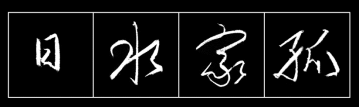 日水家孤